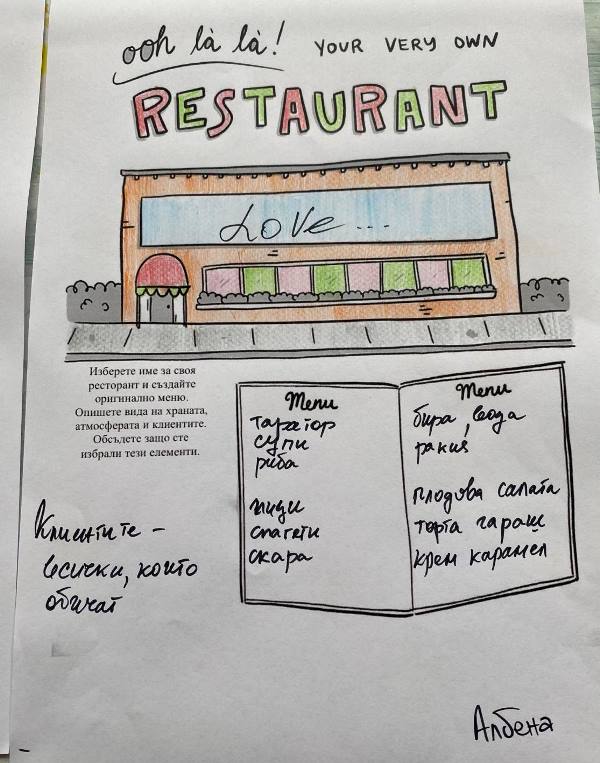 ooh là là! YOUR VERY OWN
RESTAURANT
LOVE...
Изберете име за своя
ресторант и създайте
оригинално меню.
Опишете вида на храната,
атмосферата и клиентите.
Обсъдете защо сте
избрали тези елементи.
Menu
таратор
супи
риба
миди
спагети
скара
Menu
бира, вода
ракия
плодова салата
торта гараш
крем карамел
Клиентите -
всички, които
обичат
Албена